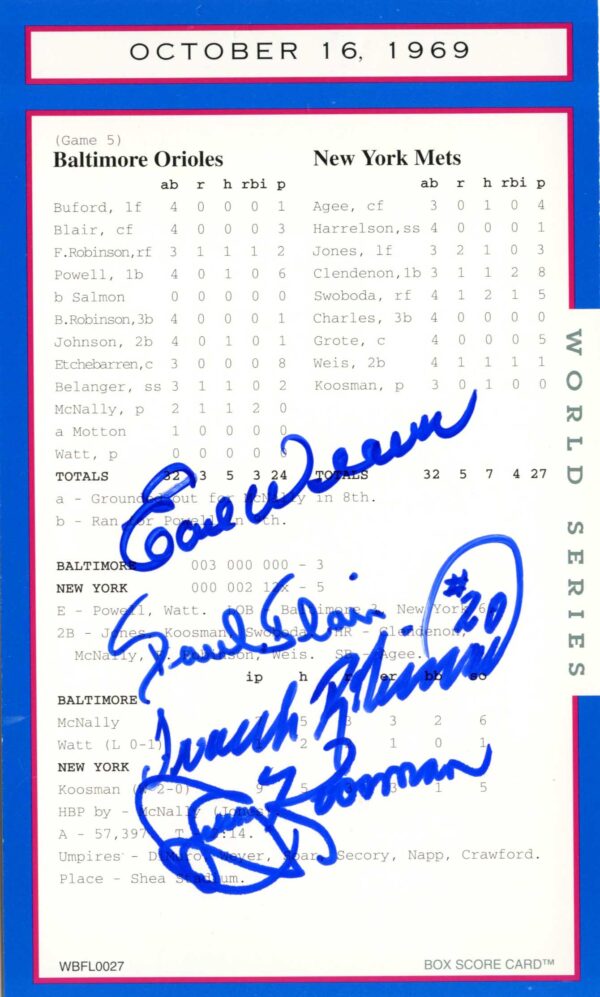 OCTOBER 16, 1969
(Game 5)
Baltimore Orioles
ab r h rbi p
Buford, lf 4 0 0 0 1
Blair, cf 4 0 0 0 3
F.Robinson,rf 3 1 1 1 2
Powell, 1b 4 0 1 0 6
b Salmon 0 0 0 0 0
B.Robinson,3b 4 0 0 0 1
Johnson, 2b 4 0 1 0 1
Etchebarren,c 3 0 0 0 8
Belanger, ss 3 1 1 0 2
McNally, p 2 1 1 2 0
a Motton 1 0 0 0 0
Watt, p 0 0 0 0 0
TOTALS 32 3 5 3 24
New York Mets
ab r h rbi p
Agee, cf 3 0 1 0 4
Harrelson,ss 4 0 0 0 1
Jones, lf 3 2 1 0 3
Clendenon,1b 3 1 1 2 8
Swoboda, rf 4 1 2 1 5
Charles, 3b 4 0 0 0 0
Grote, c 4 0 0 0 5
Weis, 2b 4 1 1 1 1
Koosman, p 3 0 1 0 0
TOTALS 32 5 7 4 27
a - Grounded out for McNally in 8th.
b - Ran for Powell in 9th.
Earl Weaver
BALTIMORE 003 000 000 - 3
NEW YORK 000 002 12x - 5
E - Powell, Watt. LOB - Baltimore 3, New York 6.
2B - Jones, Koosman, Swoboda. HR - Clendenon,
McNally, F. Robinson, Weis. SB - Agee.
Paul Blair
#20
ip h r er bb so
BALTIMORE
McNally 7 5 3 3 2 6
Watt (L 0-1) 1 2 2 1 0 1
Frank Robinson
NEW YORK
Koosman (W 2-0) 9 5 3 3 1 5
Jerry Koosman
HBP by - McNally (Jones).
A - 57,397. T - 2:14.
Umpires - DiMuro, Weyer, Soar, Secory, Napp, Crawford.
Place - Shea Stadium.
WORLD SERIES
WBFL0027
BOX SCORE CARD™